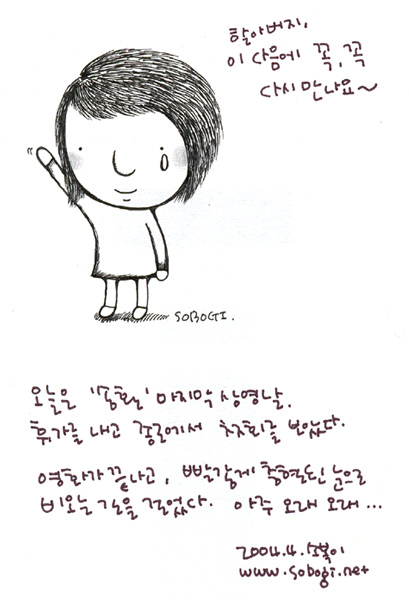 할아버지,
이 다음에 꼭, 꼭
다시 만나요~
SOBOGI.
오늘은 "송환" 마지막 상영날.
휴가를 내고 종로에서 첫회를 보았다.
영화가 끝나고, 빨갛게 충혈된 눈으로
비오는 길을 걸었다. 아주 오래 오래...
2004.4. 소복이
www.sobogi.net